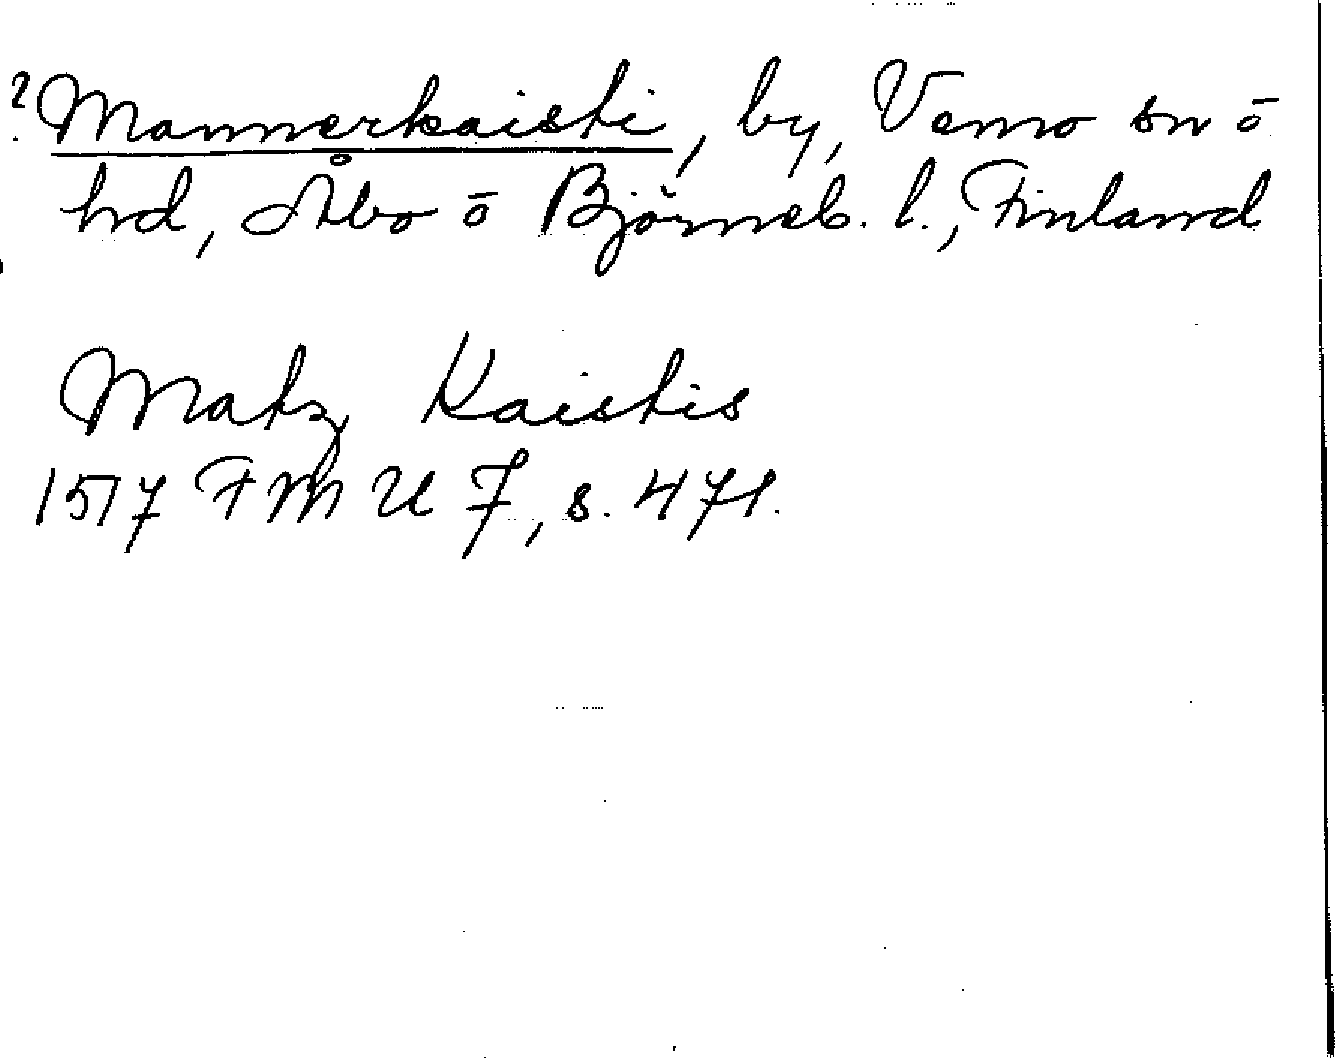 ? Mannerkaisti, by, Vemo sn ō
hd, Åbo ō Björneb. l., Finland
Matz Kaistis
1517 FMU 7, s. 471.